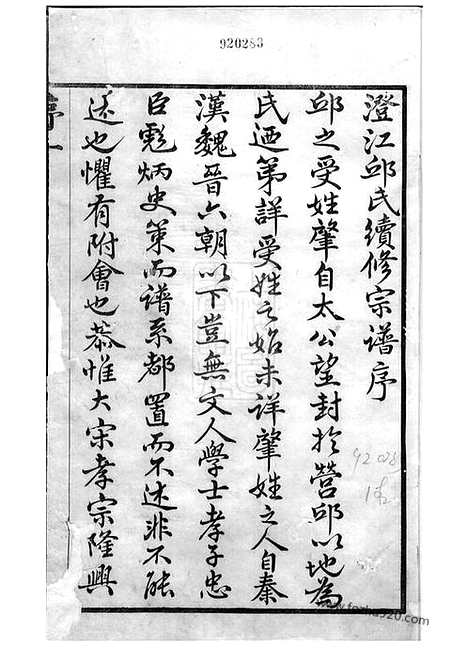 920283
澄江邱氏續修宗谱序
邱之受姓肇自太公望封於營邱以地為
氏迺第詳受姓之始未詳肇姓之人自秦
漢魏晉六朝以下豈無文人學士孝子忠
臣彪炳史策而谱系都置而不述非不能
述也懼有附會也恭惟大宋孝宗隆興
序一
www.fozhu920.com